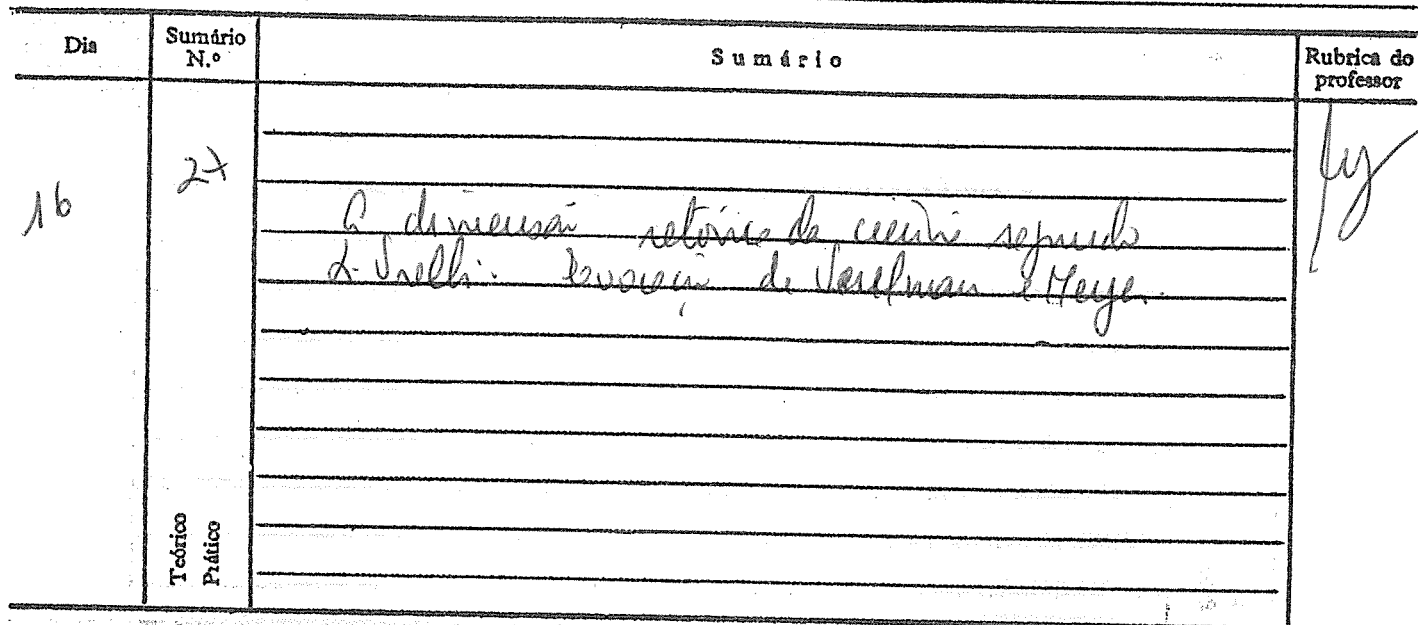 Dia
Sumário N.º
Sumário
Rubrica do professor
16
27
A dimensão retórica da ciência segundo
Evocação de e Meyer.
Teórico
Prático